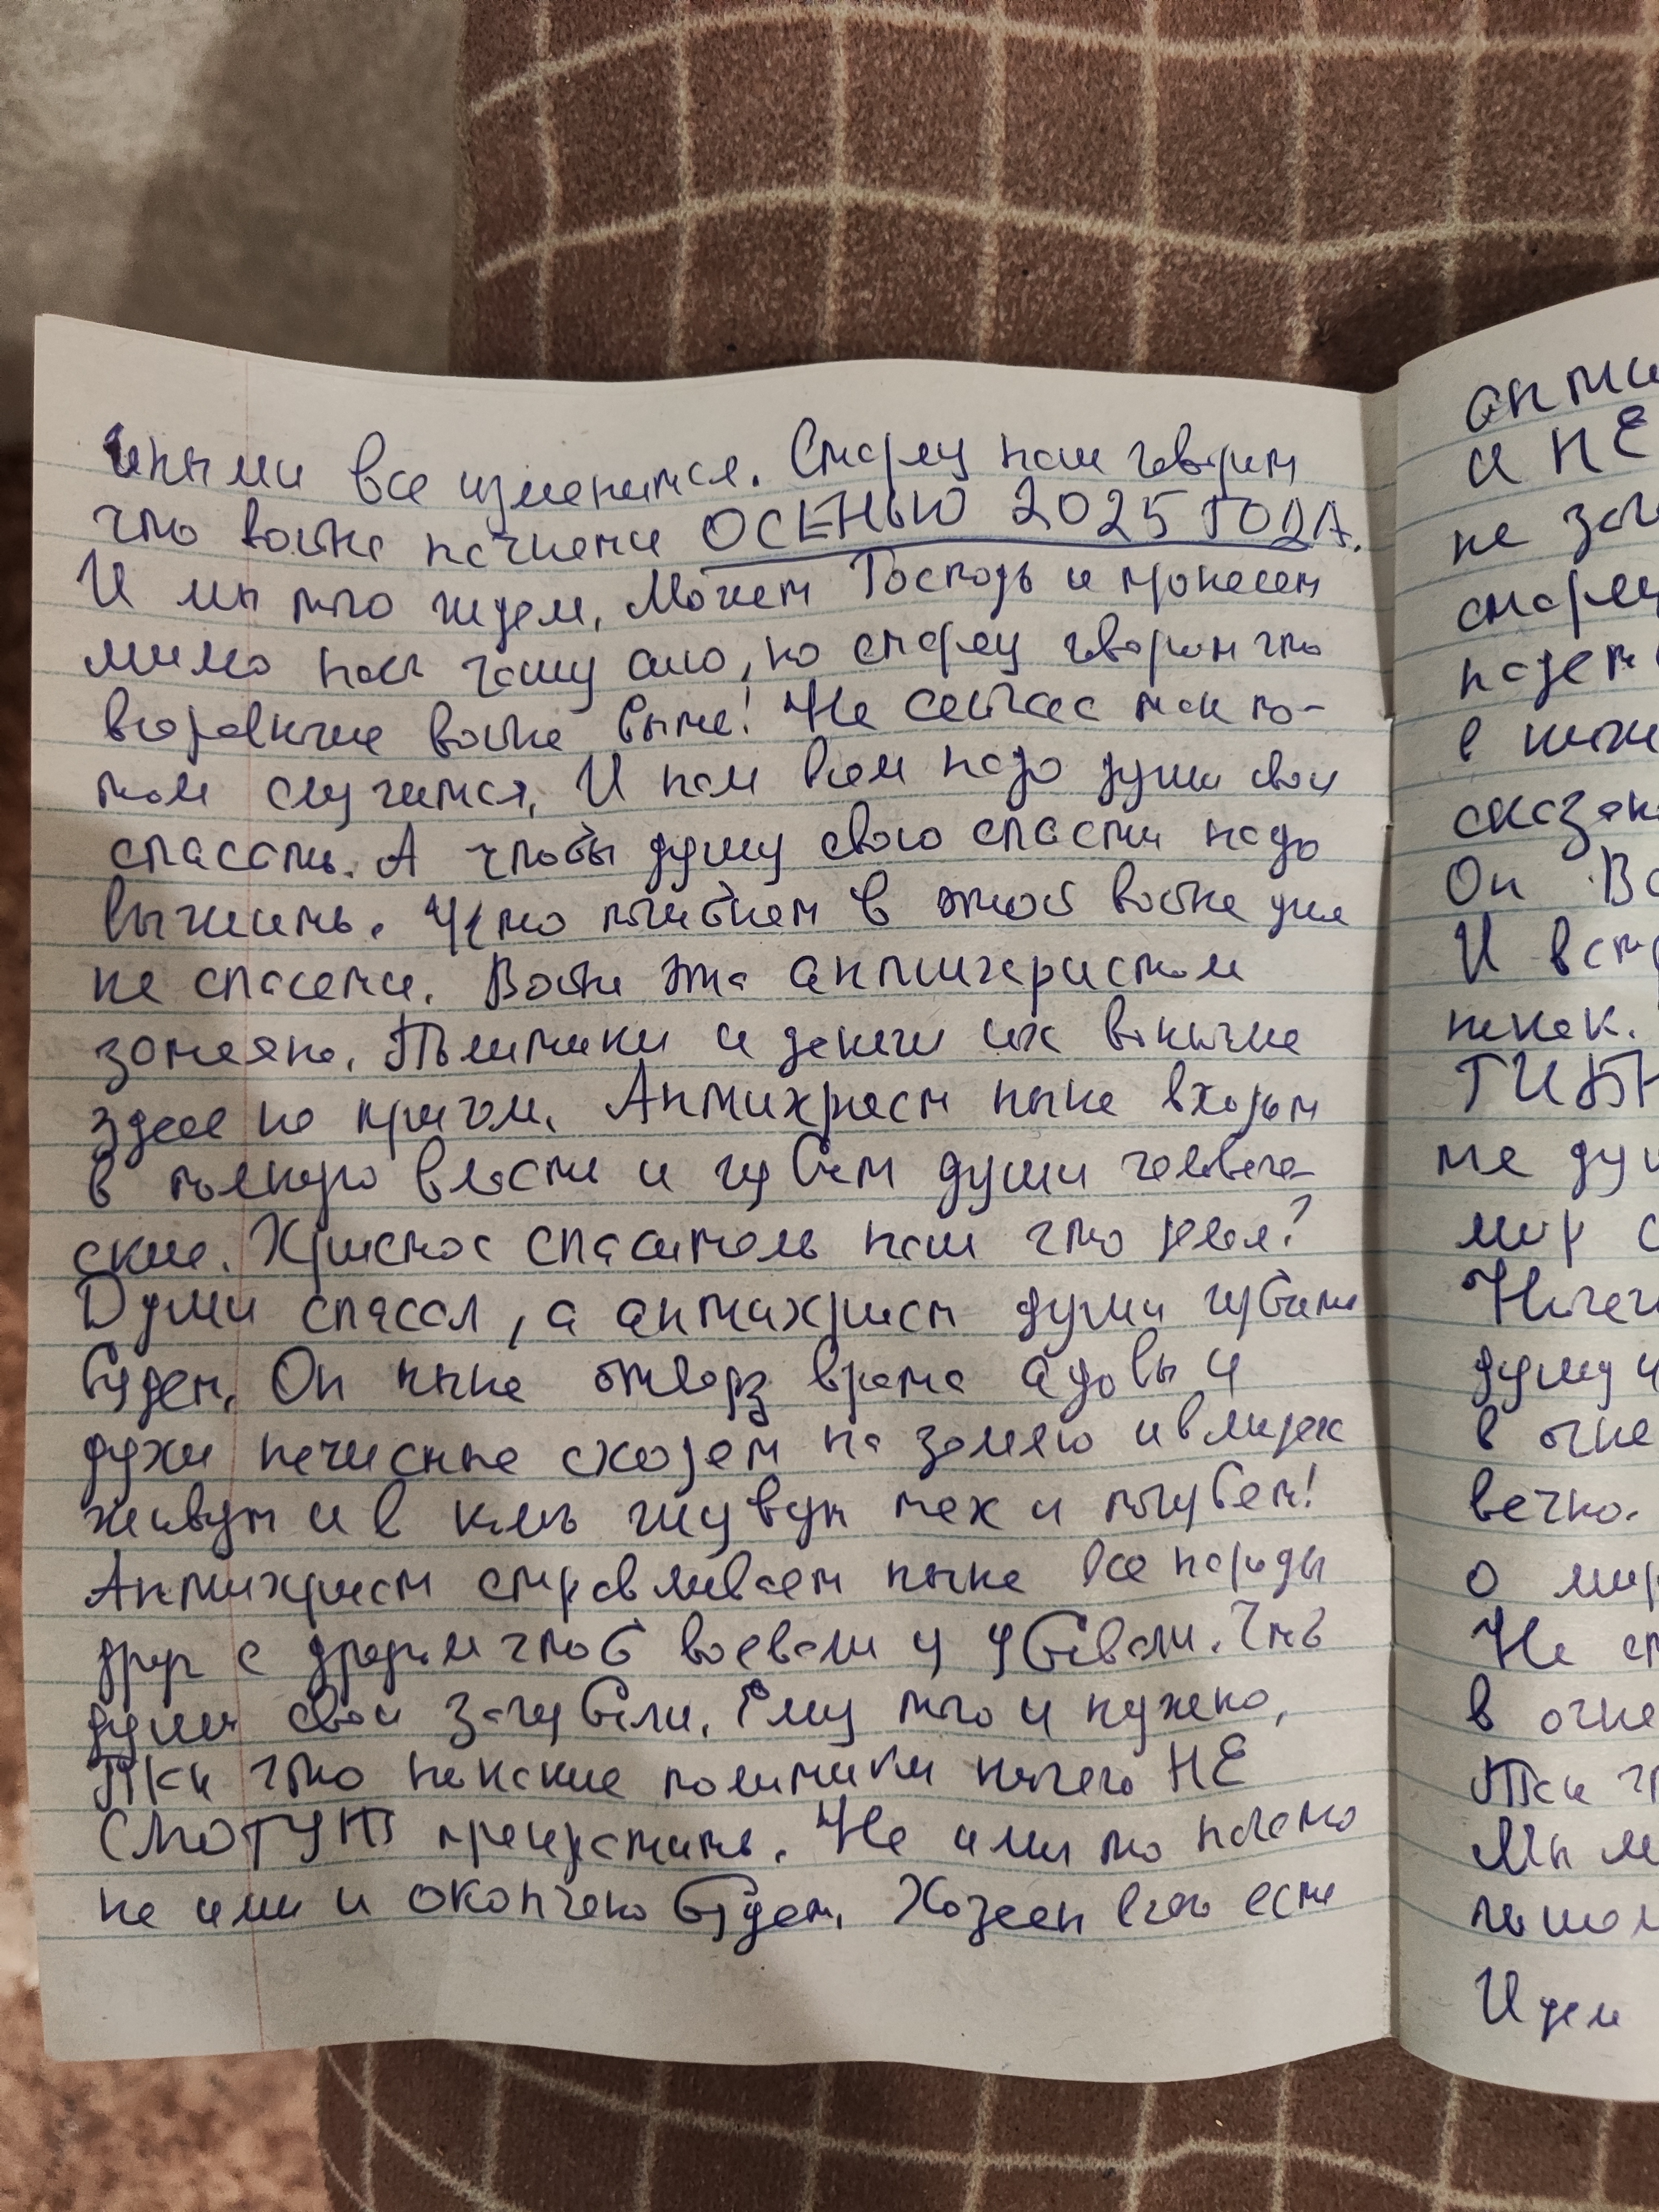 иными все изменится. Старец наш говорит
что война начнется ОСЕНЬЮ 2025 ГОДА.
И мы того ждем. Может Господь и пронесет
мимо нас чашу сию, но старец говорит что
войне быть! Не сейчас так по-
том случится. И нам всем надо души свои
спасать. А чтобы душу свою спасти надо
выжить. Кто погибнет в этой войне уже
не спасется. Война эта антихристом
затеяна. Политики и деньги их
здесь не причем. Антихрист ныне входит
в полную власть и губит души человече-
ские. Христос спаситель наш что делал?
Души спасал, а антихрист души губить
будет. Он ныне отверз врата адовы и
духи нечистые сходят на землю и в людях
живут и в ком живут тех и погубят!
Антихрист стравливает ныне все народы
друг с другом чтоб воевали и убивали. Чтоб
души свои загубили. Ему того и нужно,
Так что никакие политики ничего НЕ
СМОГУТ прекратить. Не ими то начато
не ими и окончено будет. Хозяен всего есть
анти
и НЕ
не
старец
в
Он
И
никак.
ГИБН
мир
душу и
в огне
вечно.
о мир
Не
в огне
Так
Мы
Идем